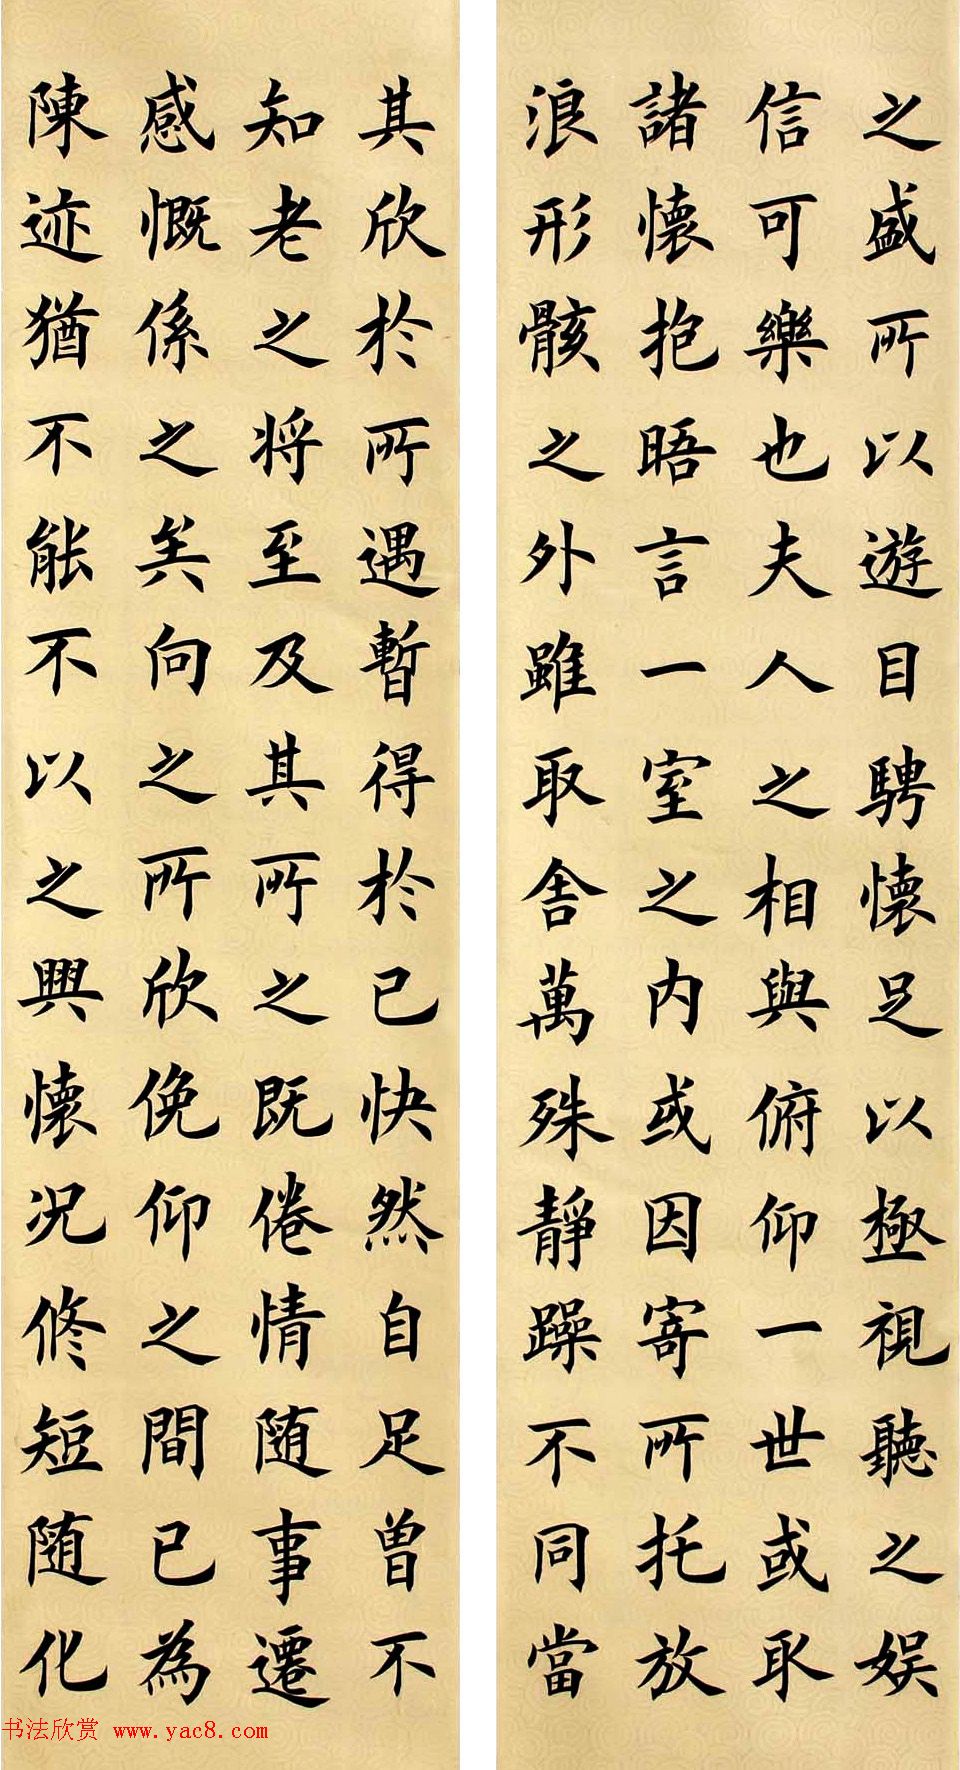 之盛所以遊目騁懷足以極視聽之娱
信可樂也夫人之相與俯仰一世或取
諸懷抱晤言一室之内或因寄所托放
浪形骸之外雖取舍萬殊靜躁不同當
其欣於所遇暫得於己快然自足曾不
知老之将至及其所之既倦情随事遷
感慨係之矣向之所欣俛仰之間已為
陳迹猶不能不以之興懷況修短随化
书法欣赏 www.yac8.com